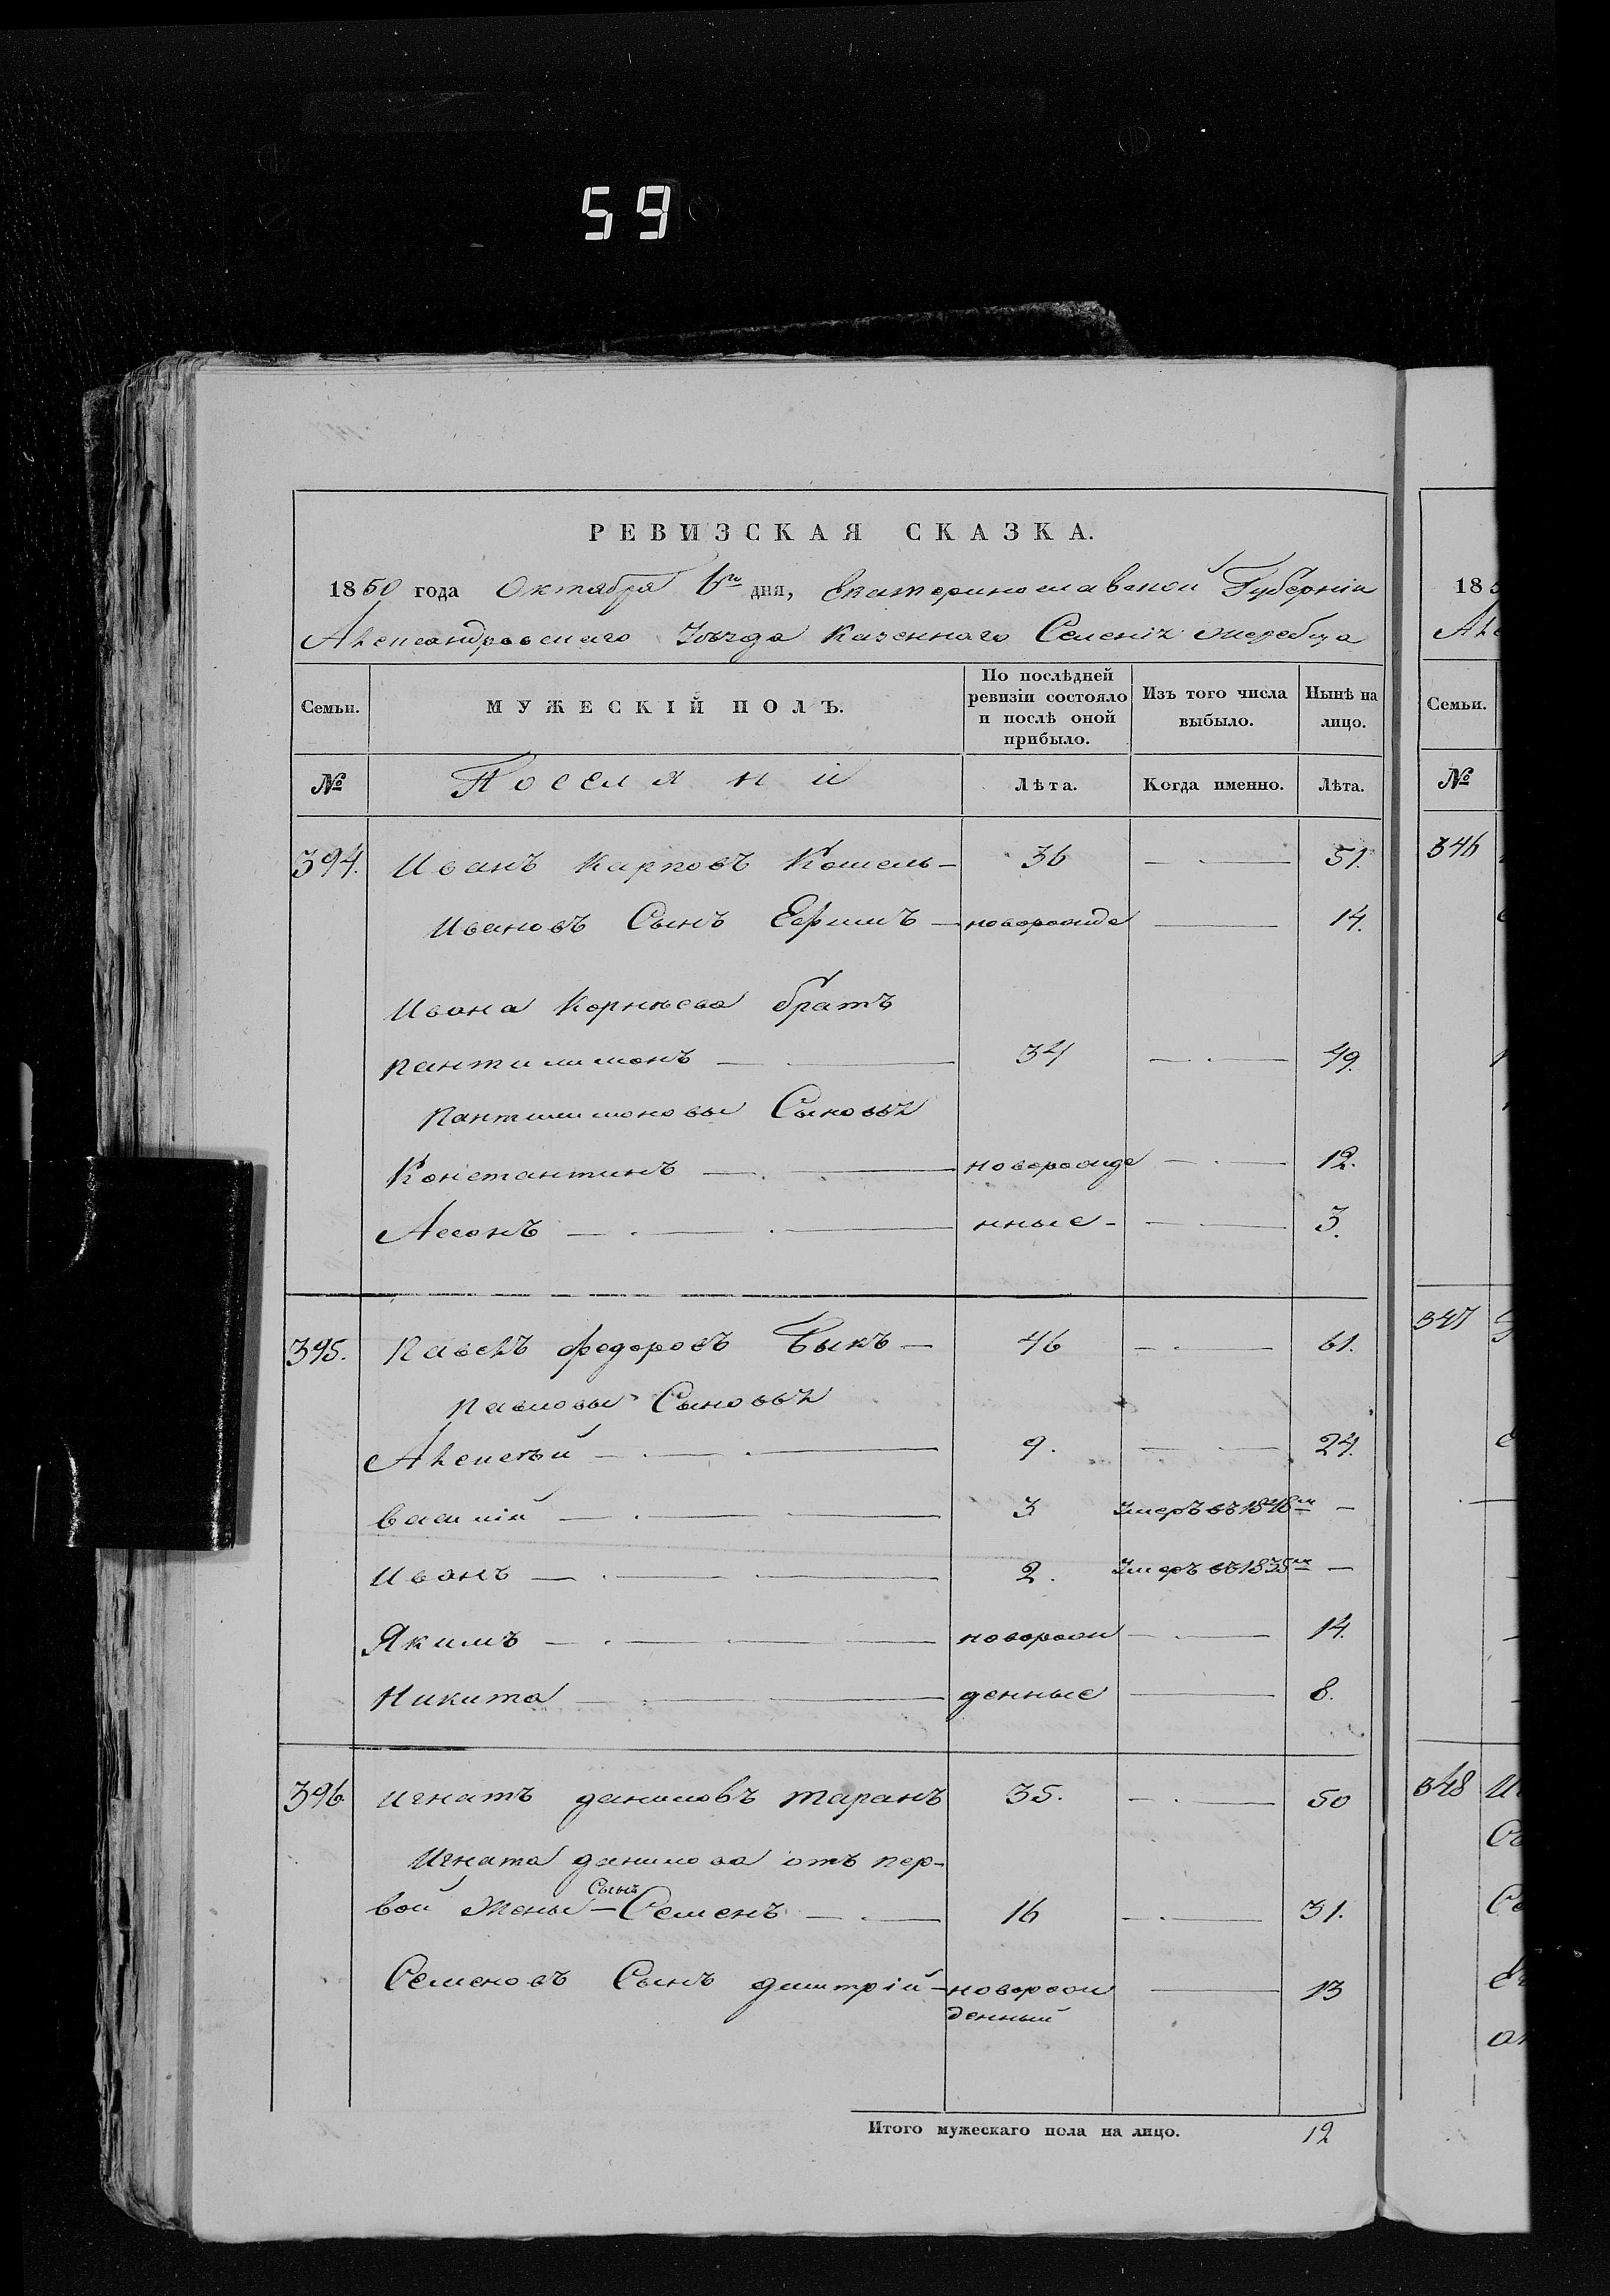 59
РЕВИЗСКАЯ СКАЗКА.
1850 года Октября 6го дня, Екатеринославской Губерніи
Александровскаго Уѣзда Казеннаго Селенія Жеребца
Семьи. МУЖЕСКІЙ ПОЛЪ. По послѣдней ревизіи состояло и послѣ оной прибыло. Изъ того числа выбыло. Нынѣ на лицо.
№ Поселяни Лѣта. Когда именно. Лѣта.
394. Иванъ Карповъ Кошель 36 51.
Ивановъ Сынъ Ефимъ новорожде 14.
Ивана Корнѣева братъ
Пантилимонъ 34 49.
Пантилимоновы Сыновья
Константинъ новорожде 12.
Асонъ нные 3.
395. Павелъ Федоровъ Быкъ 46 61.
Павловы Сыновья
Алексѣй 9. 24.
Василій 3 Умеръ въ 1848м
Иванъ 2. Умеръ въ 1835м
Якимъ новорож 14.
Никита денные 8.
396. Игнатъ Даниловъ Таранъ 35. 50
Игната Данилова отъ пер-
вой Жены Сынъ Семенъ 16 31.
Семеновъ Сынъ Дмитрій новорож 13
денный
Итого мужескаго пола на лицо. 12
185
Але
Семьи.
№
346
347
348